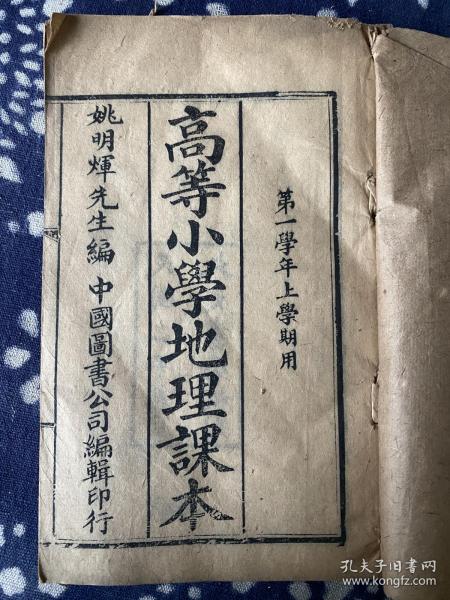 第一學年上學期用
高等小學地理課本
姚明煇先生編 中國圖書公司編輯印行
孔夫子旧书网
www.kongfz.com